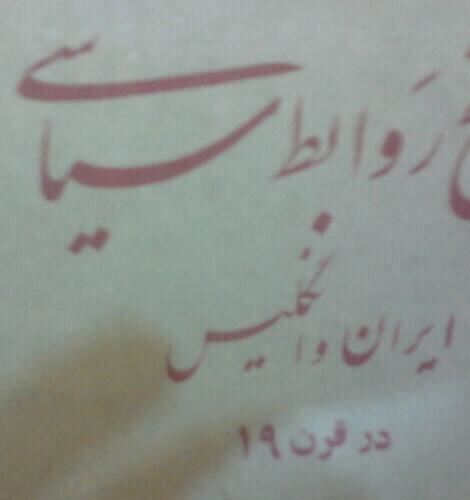 رَوابط سیاسی
ایران و انگلیس
در قرن ۱۹